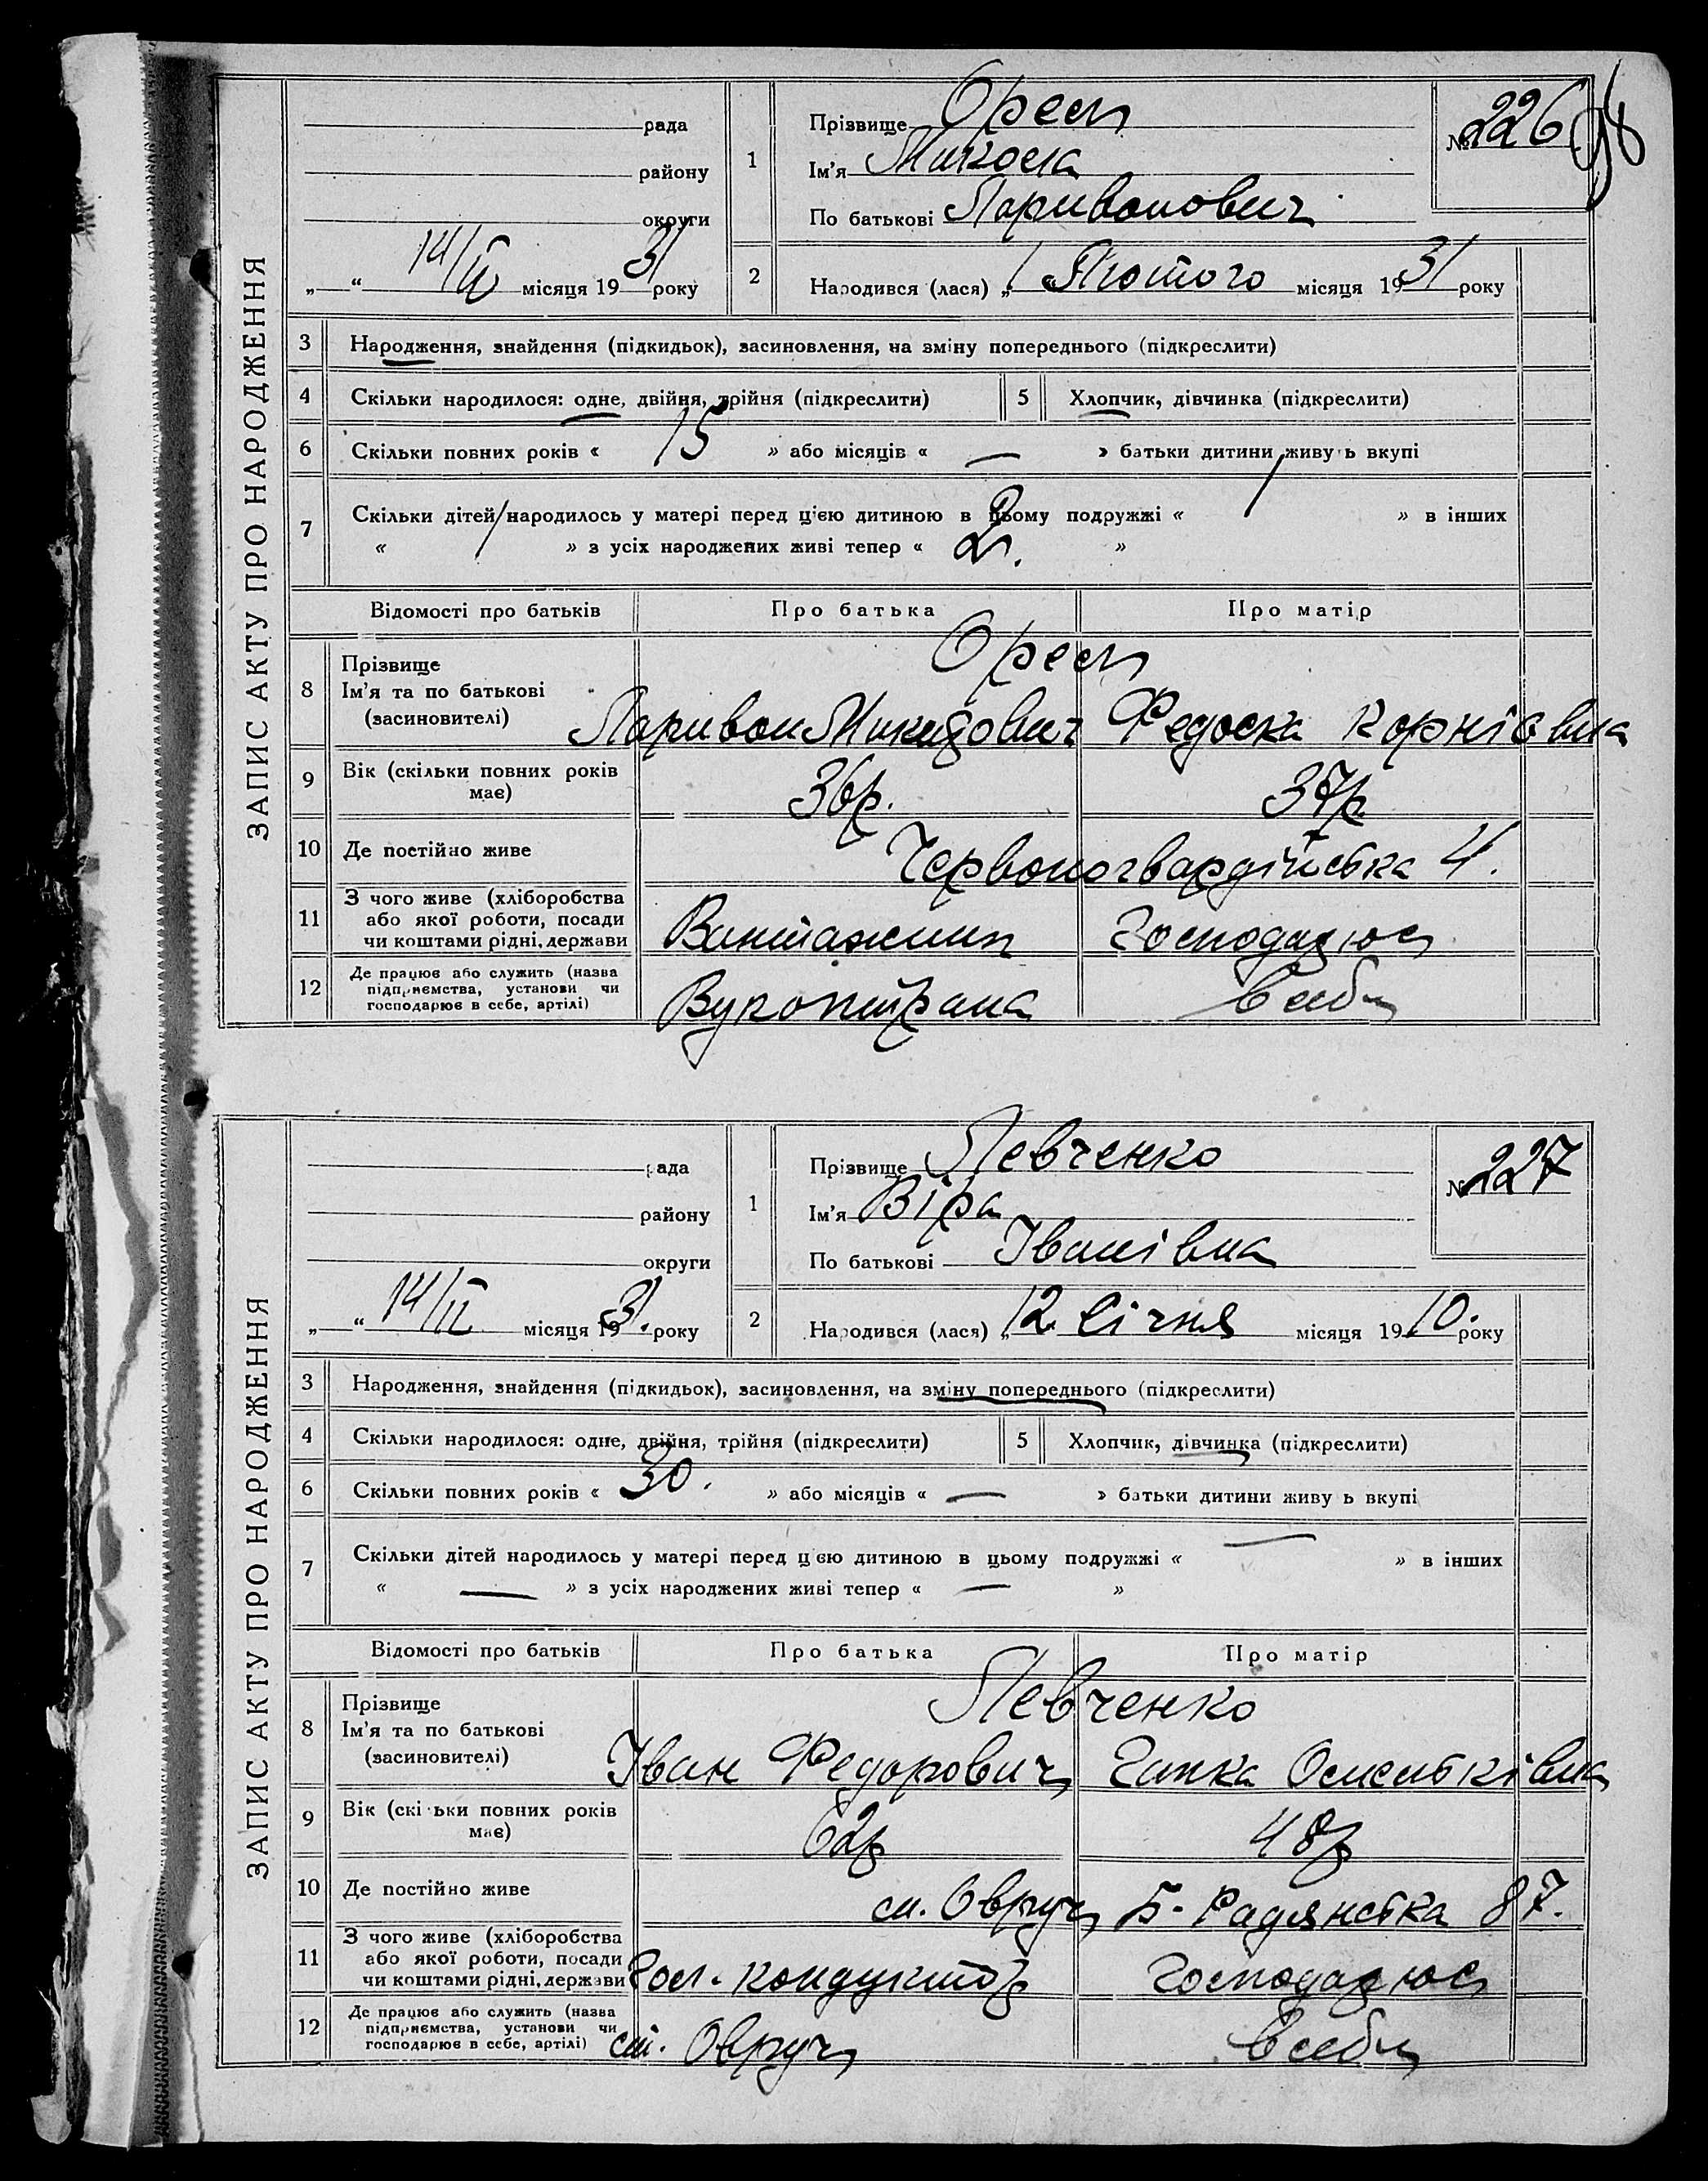 ЗАПИС АКТУ ПРО НАРОДЖЕННЯ
98
рада
району
округи
„ “ 14/II місяця 1931 року
1 Прізвище Орел
Ім'я Микола
По батькові Ларивонович
№ 226
2 Народився (лася) „ 1 Лютого місяця 1931 року
3 Народження, знайдення (підкидьок), засиновлення, на зміну попереднього (підкреслити)
4 Скільки народилося: одне, двійня, трійня (підкреслити)
5 Хлопчик, дівчинка (підкреслити)
6 Скільки повних років « 15 » або місяців « — » батьки дитини живуть вкупі
7 Скільки дітей народилось у матері перед цією дитиною в цьому подружжі « 1 » в інших
« 1 » з усіх народжених живі тепер « 2. »
Відомості про батьків Про батька Про матір
8 Прізвище
Ім'я та по батькові
(засиновителі)
Орел
Ларивон Микитович Федоска Корніївна
9 Вік (скільки повних років має) 36р. 37р.
10 Де постійно живе Червоногвардійська 4.
11 З чого живе (хліборобства
або якої роботи, посади
чи коштами рідні, держави
Вантажник Господарює
12 Де працює або служить (назва
підприємства, установи чи
господарює в себе, артілі)
в себе
ЗАПИС АКТУ ПРО НАРОДЖЕННЯ
рада
району
округи
„ “ 14/II місяця 1931. року
1 Прізвище Левченко
Ім'я Віра
По батькові Іванівна
№ 227
2 Народився (лася) „ 12 Січня місяця 1910. року
3 Народження, знайдення (підкидьок), засиновлення, на зміну попереднього (підкреслити)
4 Скільки народилося: одне, двійня, трійня (підкреслити)
5 Хлопчик, дівчинка (підкреслити)
6 Скільки повних років « 30. » або місяців « — » батьки дитини живуть вкупі
7 Скільки дітей народилось у матері перед цією дитиною в цьому подружжі « — » в інших
« — » з усіх народжених живі тепер « — »
Відомості про батьків Про батька Про матір
8 Прізвище
Ім'я та по батькові
(засиновителі)
Левченко
Іван Федорович Гапка Омельківна
9 Вік (скільки повних років має) 62р 48р
10 Де постійно живе м. Овруч Б-Радянська 87.
11 З чого живе (хліборобства
або якої роботи, посади
чи коштами рідні, держави
Гол. кондуктор Господарює
12 Де працює або служить (назва
підприємства, установи чи
господарює в себе, артілі)
ст. Овруч в себе